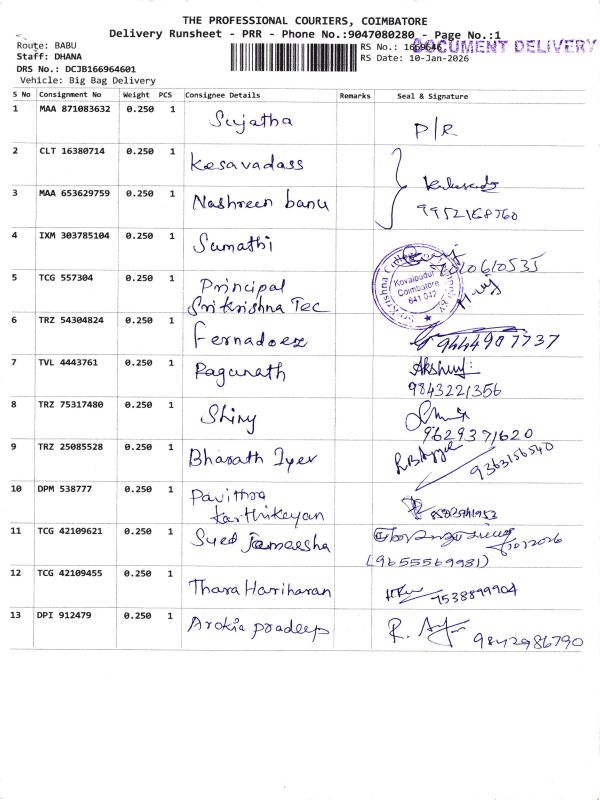 THE PROFESSIONAL COURIERS, COIMBATORE
Delivery Runsheet - PRR - Phone No.:9047080280 - Page No.:1
Route: BABU
RS No.: 1669646
DOCUMENT DELIVERY
Staff: DHANA
RS Date: 10-Jan-2026
DRS No.: DCJB166964601
Vehicle: Big Bag Delivery
S No Consignment No Weight PCS Consignee Details Remarks Seal & Signature
1 MAA 871083632 0.250 1 Sujatha P/R
2 CLT 16380714 0.250 1 Kesavadass
3 MAA 653629759 0.250 1 Nashreen banu
4 IXM 303785104 0.250 1 Sumathi
5 TCG 557304 0.250 1 Principal
Srikrishna Tec
Kovaipudur
Coimbatore
641 042
6 TRZ 54304824 0.250 1 Fernadoez 9444907737
7 TVL 4443761 0.250 1 Ragunath
9843221356
8 TRZ 75317480 0.250 1 Shiny
9629371620
9 TRZ 25085528 0.250 1 Bharath Iyer 9363156540
10 DPM 538777 0.250 1 Pavithra
Karthikeyan
11 TCG 42109621 0.250 1 Syed Jameesha
(9655569981)
12 TCG 42109455 0.250 1 Thara Hariharan 9538899904
13 DPI 912479 0.250 1 Arokia pradeep 9842986790